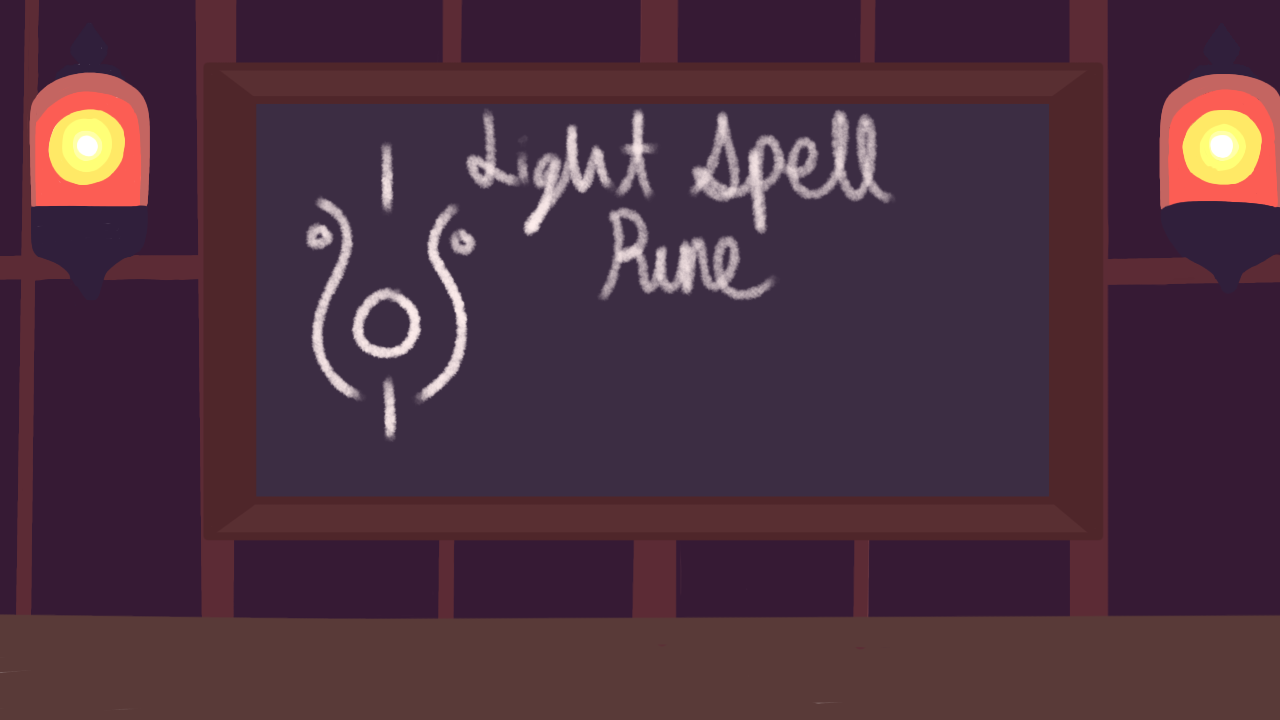 Light Spell
Rune